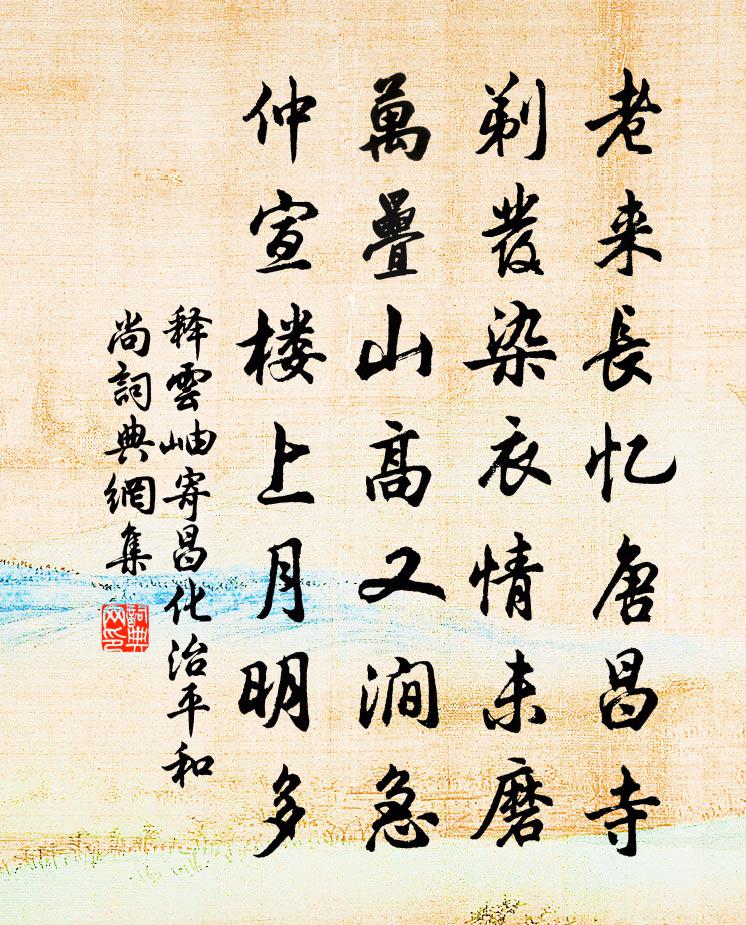 老来長忆唐昌寺
剃发染衣情未磨
萬疊山高又澗急
仲宣楼上月明多
释雲岫寄昌化治平和
尚詞典網集
詞典
网印